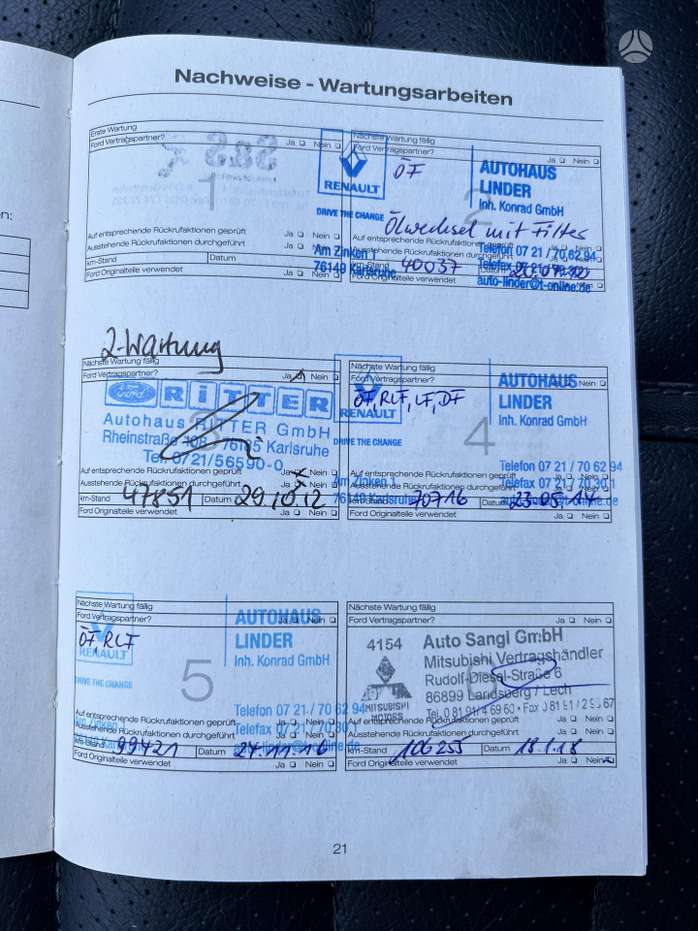 Nachweise - Wartungsarbeiten
Erste Wartung
Ford Vertragspartner? Ja Nein
1
Auf entsprechende Rückrufaktionen geprüft
Ausstehende Rückrufaktionen durchgeführt Ja Nein
km-Stand Datum
Ford Originalteile verwendet Ja Nein
Nächste Wartung fällig
Ford Vertragspartner? Ja Nein
RENAULT
DRIVE THE CHANGE
ÖF
AUTOHAUS
LINDER
Inh. Konrad GmbH
2
Ölwechsel mit Filter
Auf entsprechende Rückrufaktionen geprüft
Ausstehende Rückrufaktionen durchgeführt
Telefon 07 21 / 70 62 94
Am Zinken 1
km-Stand 40037
76149 Karlsruhe
auto-linder@t-online.de
2-Wartung
Nächste Wartung fällig
Ford Vertragspartner? Ja Nein
Ford RITTER
Autohaus RITTER GmbH
Rheinstraße 76185 Karlsruhe
Tel. 0721/56590-0
Auf entsprechende Rückrufaktionen geprüft Ja Nein
Ausstehende Rückrufaktionen durchgeführt Ja Nein
km-Stand 47851 Datum 29.10.12
Ford Originalteile verwendet Ja Nein
Nächste Wartung fällig
Ford Vertragspartner?
ÖF, RLF, LF, DF
RENAULT
DRIVE THE CHANGE
AUTOHAUS
LINDER
Inh. Konrad GmbH
4
Telefon 07 21 / 70 62 94
Auf entsprechende Rückrufaktionen geprüft
Am Zinken 1
Ausstehende Rückrufaktionen durchgeführt
76149 Karlsruhe
km-Stand 70716 Datum 23.05.14
Ford Originalteile verwendet Ja Nein
Nächste Wartung fällig
Ford Vertragspartner? Ja Nein
ÖF, RLF
RENAULT
DRIVE THE CHANGE
AUTOHAUS
LINDER
Inh. Konrad GmbH
5
Telefon 07 21 / 70 62 94
Auf entsprechende Rückrufaktionen geprüft
Ausstehende Rückrufaktionen durchgeführt
km-Stand 99421 Datum 24.11.16
Ford Originalteile verwendet Ja Nein
Nächste Wartung fällig
Ford Vertragspartner? Ja Nein
4154
MITSUBISHI
MOTORS
Auto Sangl GmbH
Mitsubishi Vertragshändler
Rudolf-Diesel-Straße 6
86899 Landsberg / Lech
Tel. 0 81 91/4 69 60 • Fax
Auf entsprechende Rückrufaktionen geprüft
Ausstehende Rückrufaktionen durchgeführt Ja Nein
km-Stand 106255 Datum 18.1.18
Ford Originalteile verwendet Ja Nein
21